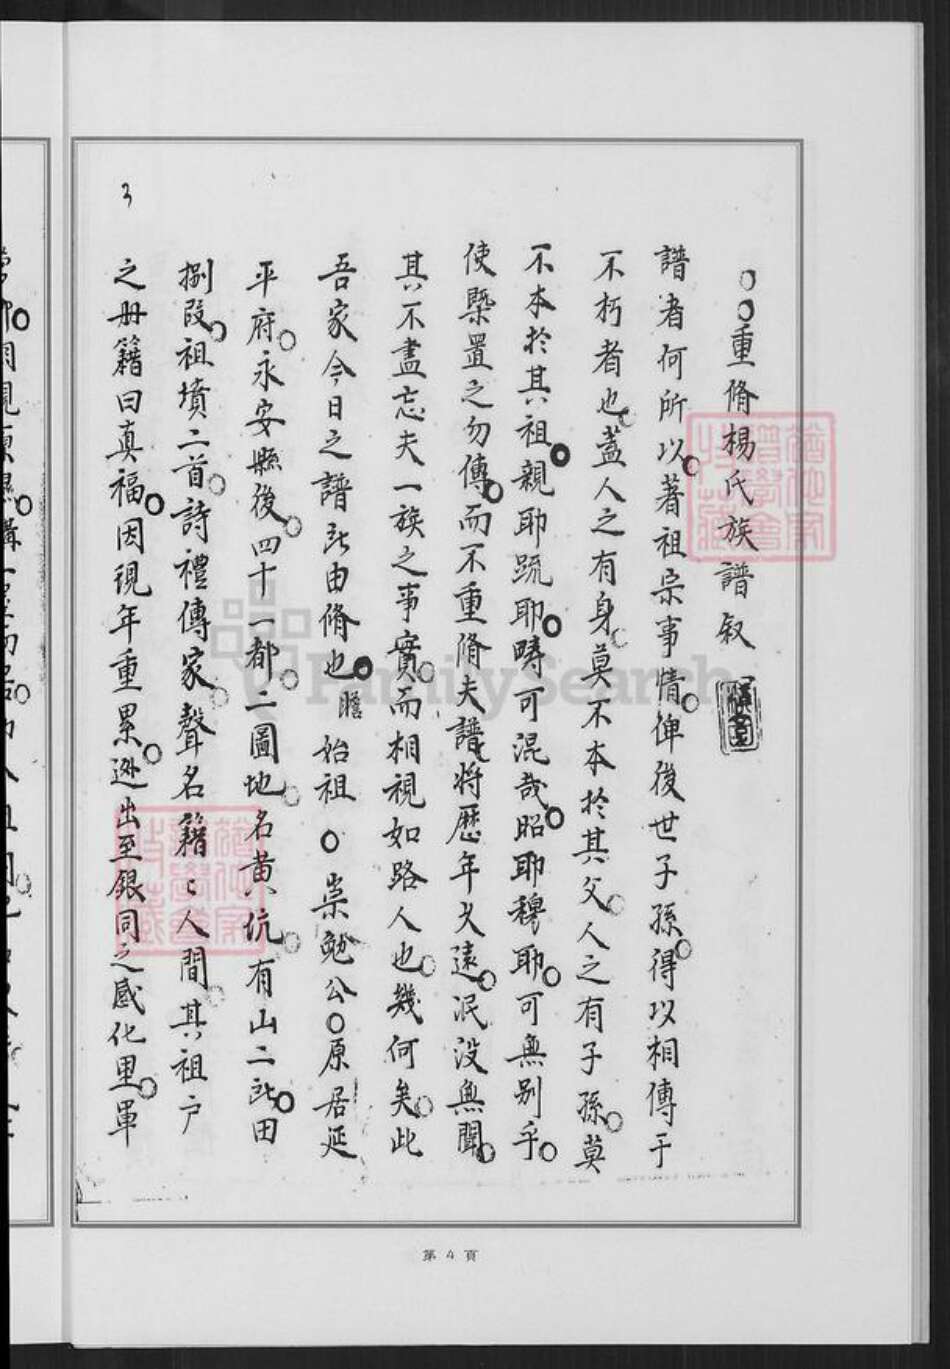 重脩楊氏族譜叙
譜者何所以著祖宗事情俾後世子孫得以相傳于
不朽者也蓋人之有身莫不本於其父人之有子孫莫
不本於其祖親耶疏耶疇可混哉昭耶穆耶可無别乎
使槩置之勿傳而不重脩夫譜將歷年久遠泯没無聞
其不盡忘夫一族之事實而相視如路人也幾何矣此
吾家今日之譜所由脩也瞻始祖崇勉公原居延
平府永安縣後四十一都二圖地名黄坑有山二所田
捌段祖墳二首詩禮傳家聲名籍〻人間其祖户
之册籍曰真福因現年重累逃出至銀同之感化里軍
3
第 4 頁
FamilySearch